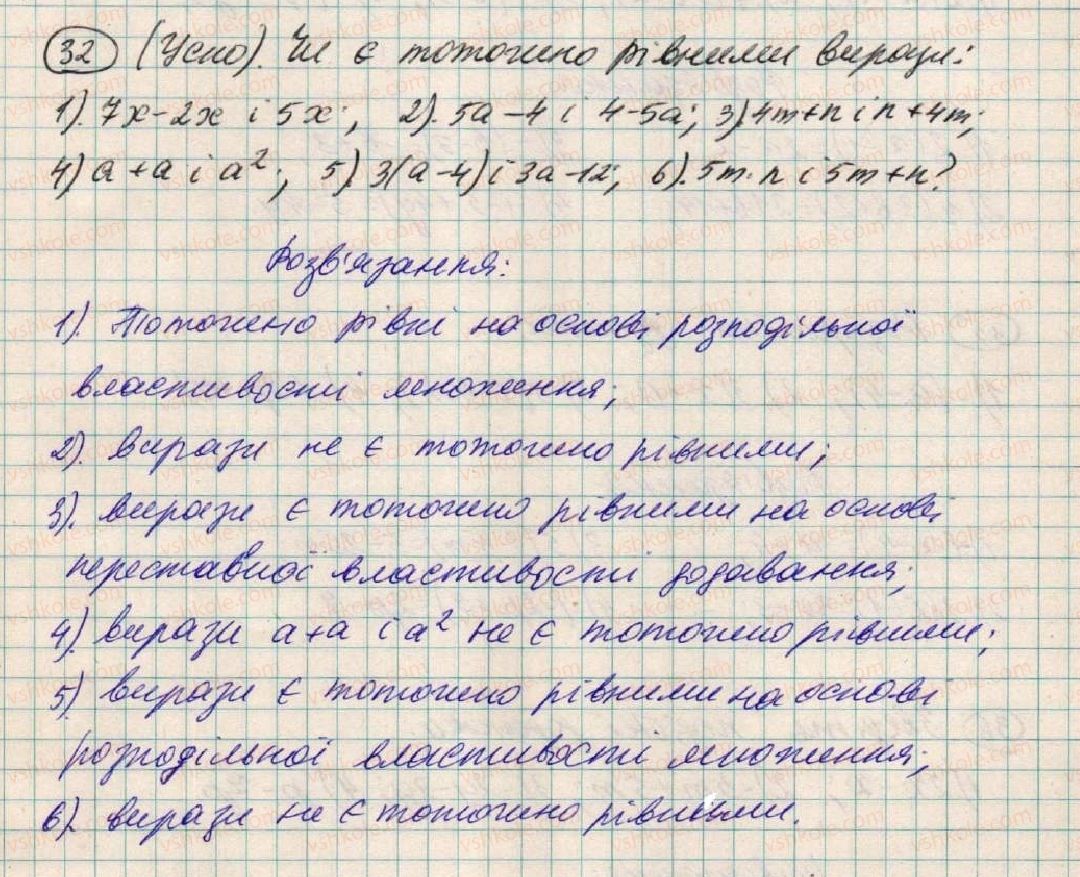 32 (Усно). Чи є тотожно рівними вирази:
1). 7x-2x і 5x; 2). 5a-4 і 4-5a; 3). 4m+n і n+4m;
4) a+a і a²; 5). 3(a-4) і 3a-12; 6). 5m·n і 5m+n?
Розв'язання:
1). Тотожно рівні на основі розподільної
властивості множення;
2). вирази не є тотожно рівними;
3). вирази є тотожно рівними на основі
переставної властивості додавання;
4). вирази a+a і a² не є тотожно рівними;
5). вирази є тотожно рівними на основі
розподільної властивості множення;
6). вирази не є тотожно рівними.